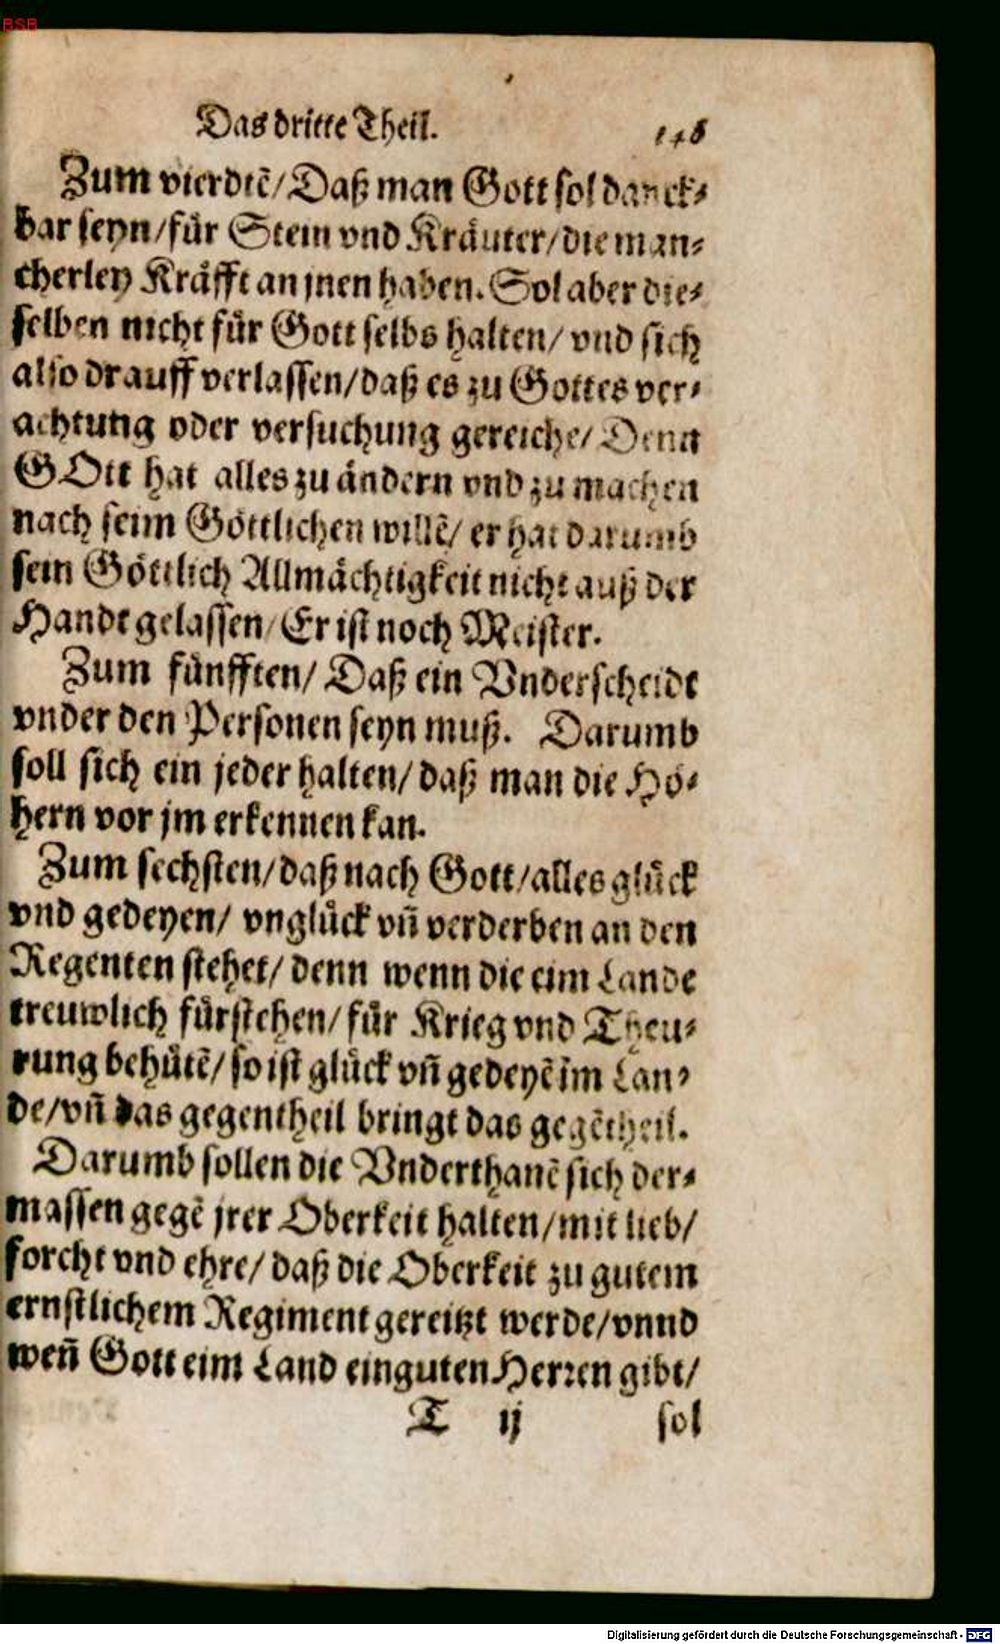 BSB
Das dritte Theil. 146
Zum vierdtẽ/Daß man Gott sol danck-
bar seyn/für Stein vnd Kräuter/die man-
cherley Kräfft an jnen haben. Sol aber die-
selben nicht für Gott selbs halten/ vnd sich
also drauff verlassen/daß es zu Gottes ver-
achtung oder versuchung gereiche/ Denn
GOtt hat alles zu ändern vnd zu machen
nach seim Göttlichen willẽ/ er hat darumb
sein Göttlich Allmächtigkeit nicht auß der
Handt gelassen/ Er ist noch Meister.
Zum fünfften/ Daß ein Vnderscheidt
vnder den Personen seyn muß. Darumb
soll sich ein jeder halten/ daß man die Hö-
hern vor jm erkennen kan.
Zum sechsten/daß nach Gott/alles glück
vnd gedeyen/ vnglück vñ verderben an den
Regenten stehet/ denn wenn die eim Lande
treuwlich fürstehen/ für Krieg vnd Theu-
rung behütẽ/ so ist glück vñ gedeyẽ im Lan-
de/vñ das gegentheil bringt das gegẽtheil.
Darumb sollen die Vnderthanẽ sich der-
massen gegẽ jrer Oberkeit halten/mit lieb/
forcht vnd ehre/ daß die Oberkeit zu gutem
ernstlichem Regiment gereitzt werde/vnnd
weñ Gott eim Land ein guten Herren gibt/
T ij sol
Digitalisierung gefördert durch die Deutsche Forschungsgemeinschaft - DFG